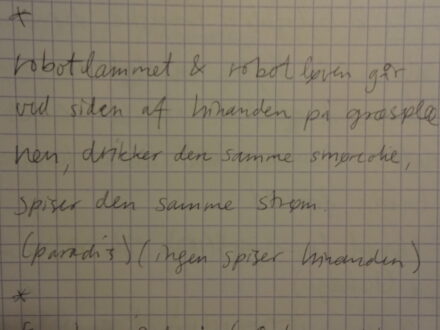 *
robotlammet & robotløven går
ved siden af hinanden på græsplæ
nen, drikker den samme smøreolie,
spiser den samme strøm.
(paradis) (ingen spiser hinanden)
*